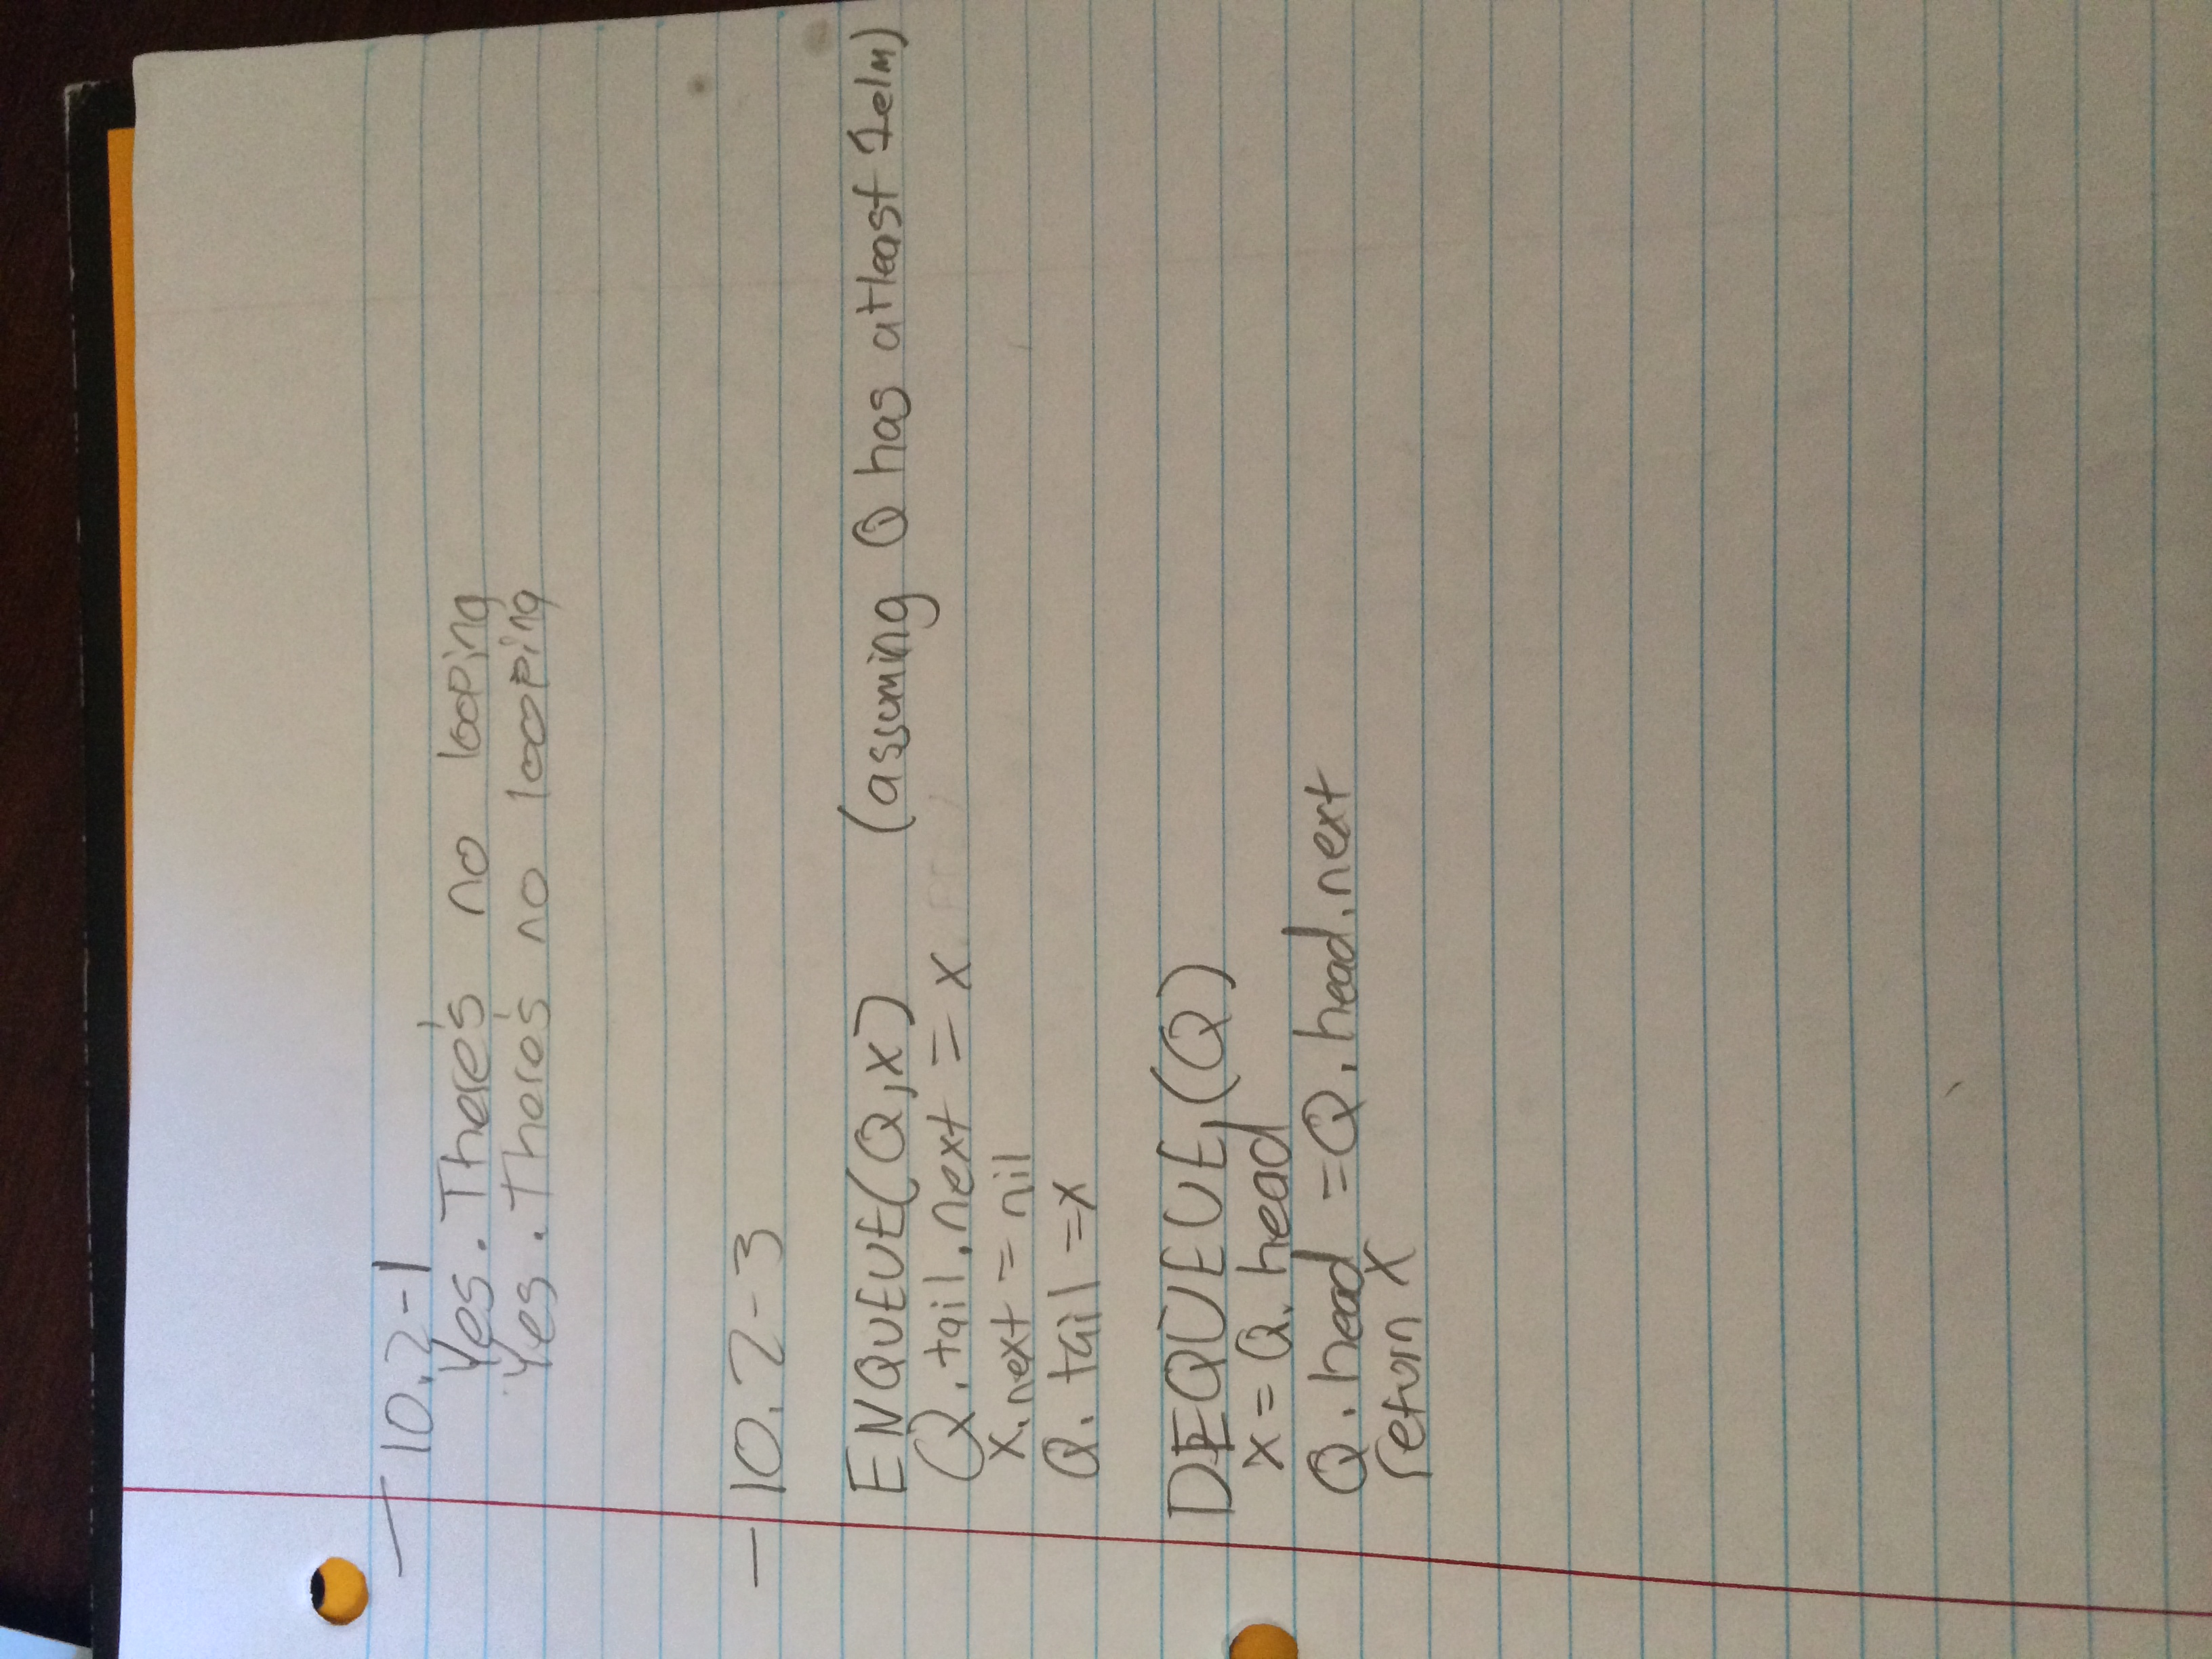 - 10.2-1
Yes. There's no looping
Yes. There's no looping
- 10.2-3
ENQUEUE(Q,x) (assuming Q has atleast 1elm)
Q.tail.next = x
x.next = nil
Q.tail = x
DEQUEUE(Q)
x = Q.head
Q.head = Q.head.next
return x